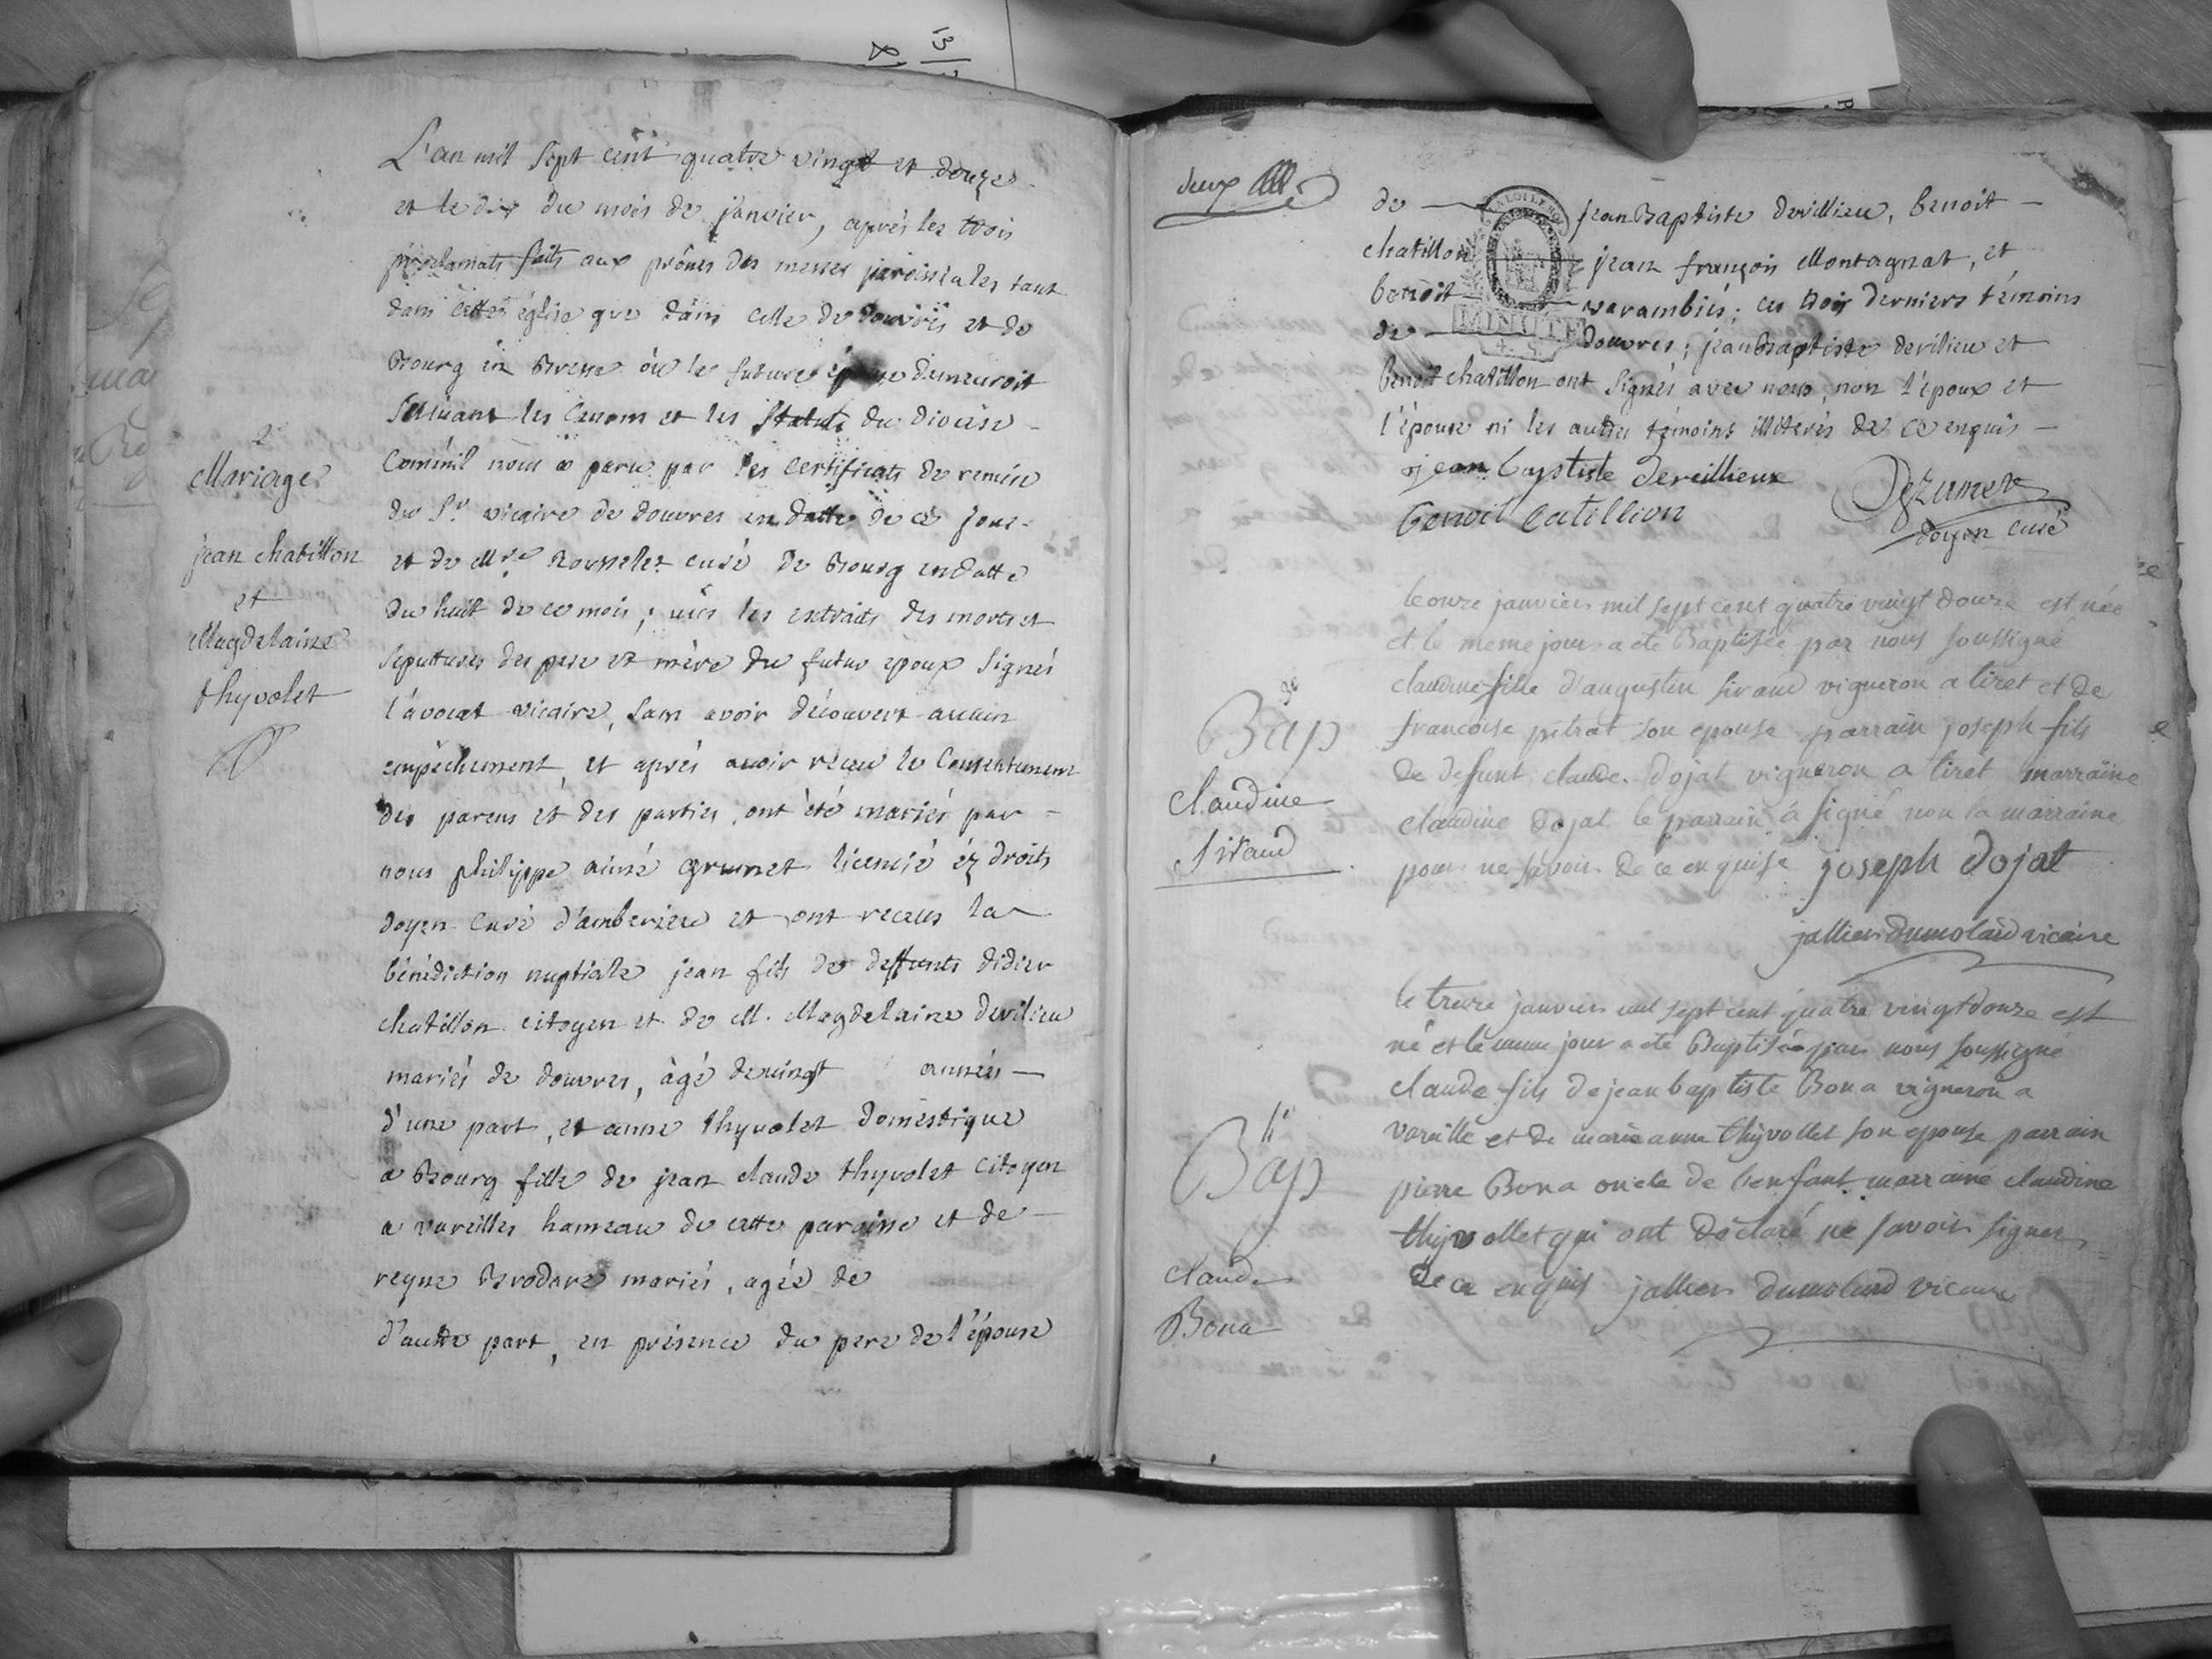 L'an mil sept cent quatre vingt et douze
et le dix du mois de janvier, après les trois
proclamats faits aux prônes des messes paroissiales tant
dans cette église que dans celle de douvres et de
Bourg en Bresse où la future épouse demeuroit
suivant les canons et les statuts du diocèse
comm'il nous a paru par les certificats de remise
du Sr vicaire de douvres en datte de ce jour
et de Mre Rousselet curé de Bourg en datte
du huit de ce mois; vûs les extraits des mortset
sepultures des pere et mère du futur epoux signés
l'avocat vicaire, sans avoir découvert aucun
empêchement, et après avoir reçu le consentement
des parens et des parties, ont été mariés par
nous philippe aimé grunet licencié éz droits
doyen curé d'amberieu et ont recus la
bénédiction nuptiale jean fils de deffunts didier
chatillon citoyen et de M. Magdelaine devilieu
mariés de douvres, âgé de vingt années
d'une part, et anne thyvolet domestique
a Bourg fille de jean claude thyvolet citoyen
a vareilles hameau de cette paroisse et de
reyne Brodare mariés, agée de
d'autre part, en présence du pere de l'épouse
2e
Mariage
jean chatillon
et
Magdelaine
thyvolet
deux
de jean Baptiste devillieu, benoit
chatillon jean françois Montagnat, et
benoit varambiés; ces trois derniers témoins
de douvres; jean Baptiste devilieu et
benoit chatillon ont signés avec nous, non l'époux et
l'épouse ni les autres témoins illiterés de ce enquis
jean baptiste devillieux
benoit catillion
doyen curé
LA LOI LE ROI
MINUTE
4. S.
le onze janvier mil sept cent quatre vingt douze est née
et le meme jour a ete Baptisée par nous soussigné
claudine fille d'augustin sivand vigneron a tiret et de
francoise pitrat son epouse parrain joseph fils
de defunt claude dojat vigneron a tiret marraine
claudine dojat le parrain a signé non la marraine
pour ne savoir de ce enquise joseph dojat
jallier dumolard vicaire
3e
Bap
claudine
Sivand
le treize janvier mil sept cent quatre vingt douze est
né et le meme jour a ete Baptisé par nous soussigné
claude fils de jean baptiste Bona vigneron a
vareille et de marie anne thyvollet son epouse parrain
pierre Bona oncle de l'enfant marraine claudine
thyvollet qui ont déclaré ne savoir signer
de ce enquis jallier dumolard vicaire
4e
Bap
claude
Bona